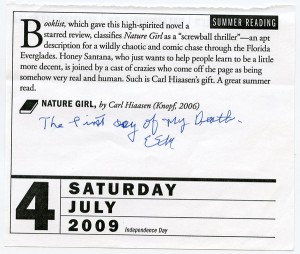 SUMMER READING
Booklist, which gave this high-spirited novel a
starred review, classifies Nature Girl as a "screwball thriller"—an apt
description for a wildly chaotic and comic chase through the Florida
Everglades. Honey Santana, who just wants to help people learn to be a little
more decent, is joined by a cast of crazies who come off the page as being
somehow very real and human. Such is Carl Hiaasen's gift. A great summer
read.
NATURE GIRL, by Carl Hiaasen (Knopf, 2006)
The first day of my death.
4
SATURDAY
JULY
2009 Independence Day